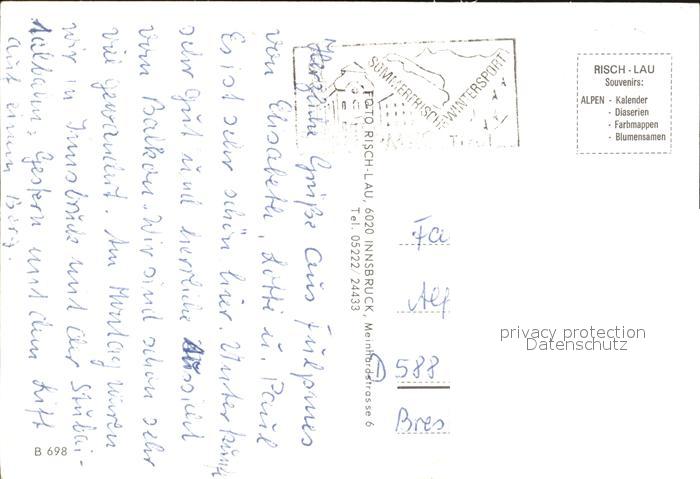 Herzliche Grüße aus Fulpmes
von Elisabeth, Lotte u. Paul
Es ist sehr schön hier. Unterkunft
sehr gut und herrliche Aussicht
vom Balkon. Wir sind schon sehr
viel gewandert. Am Montag waren
wir in Innsbruck und der Stubai-
talbahn. Gestern mit dem Lift
auf einen Berg.
B 698
FOTO RISCH-LAU, 6020 INNSBRUCK, Meinhardstrasse 6
Tel. 05222/24433
SOMMERFRISCHE
WINTERSPORT
RISCH - LAU
Souvenirs:
ALPEN - Kalender
- Diaserien
- Farbmappen
- Blumensamen
Fa
Alf
D 588
Bres
privacy protection
Datenschutz